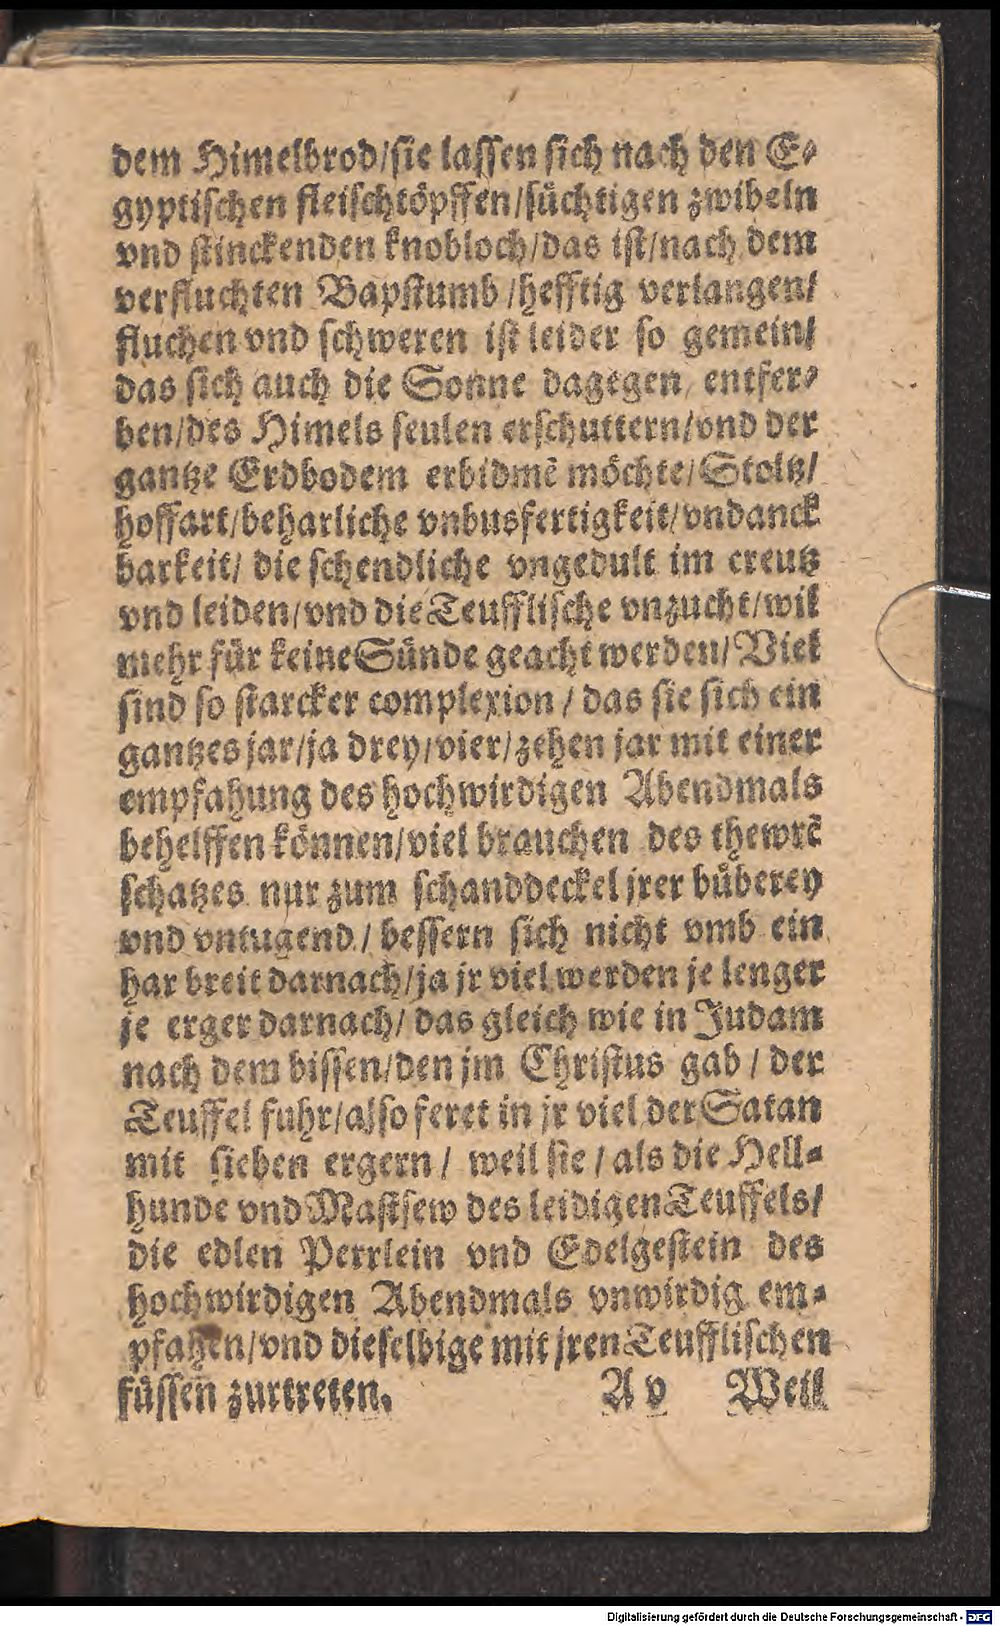 dem Himelbrod/sie lassen sich nach den E⸗
gyptischen fleischtöpffen/süchtigen zwibeln
vnd stinckenden knobloch/das ist/nach dem
verfluchten Bapstumb /hefftig verlangen/
fluchen vnd schweren ist leider so gemein/
das sich auch die Sonne dagegen entfer⸗
ben/des Himels seulen erschuttern/vnd der
gantze Erdbodem erbidmē möchte/Stoltz/
hoffart/beharliche vnbusfertigkeit/vndanck
barkeit/ die schendliche vngedult im creutz
vnd leiden/vnd die Teufflische vnzucht/wil
mehr für keine Sünde geacht werden/Viel
sind so starcker complexion / das sie sich ein
gantzes jar/ja drey/vier/zehen jar mit einer
empfahung des hochwirdigen Abendmals
behelffen können/viel brauchen des thewrē
schatzes nur zum schanddeckel jrer bůberey
vnd vntugend / bessern sich nicht vmb ein
har breit darnach/ja jr viel werden je lenger
je erger darnach/ das gleich wie in Judam
nach dem bissen/den jm Christus gab / der
Teuffel fuhr/also feret in jr viel der Satan
mit sieben ergern / weil sie / als die Hell⸗
hunde vnd Mastsew des leidigen Teuffels/
die edlen Perrlein vnd Edelgestein des
hochwirdigen Abendmals vnwirdig em⸗
pfahen/vnd dieselbige mit jren Teufflischen
füssen zurtreten.
A v Weil
Digitalisierung gefördert durch die Deutsche Forschungsgemeinschaft - DFG